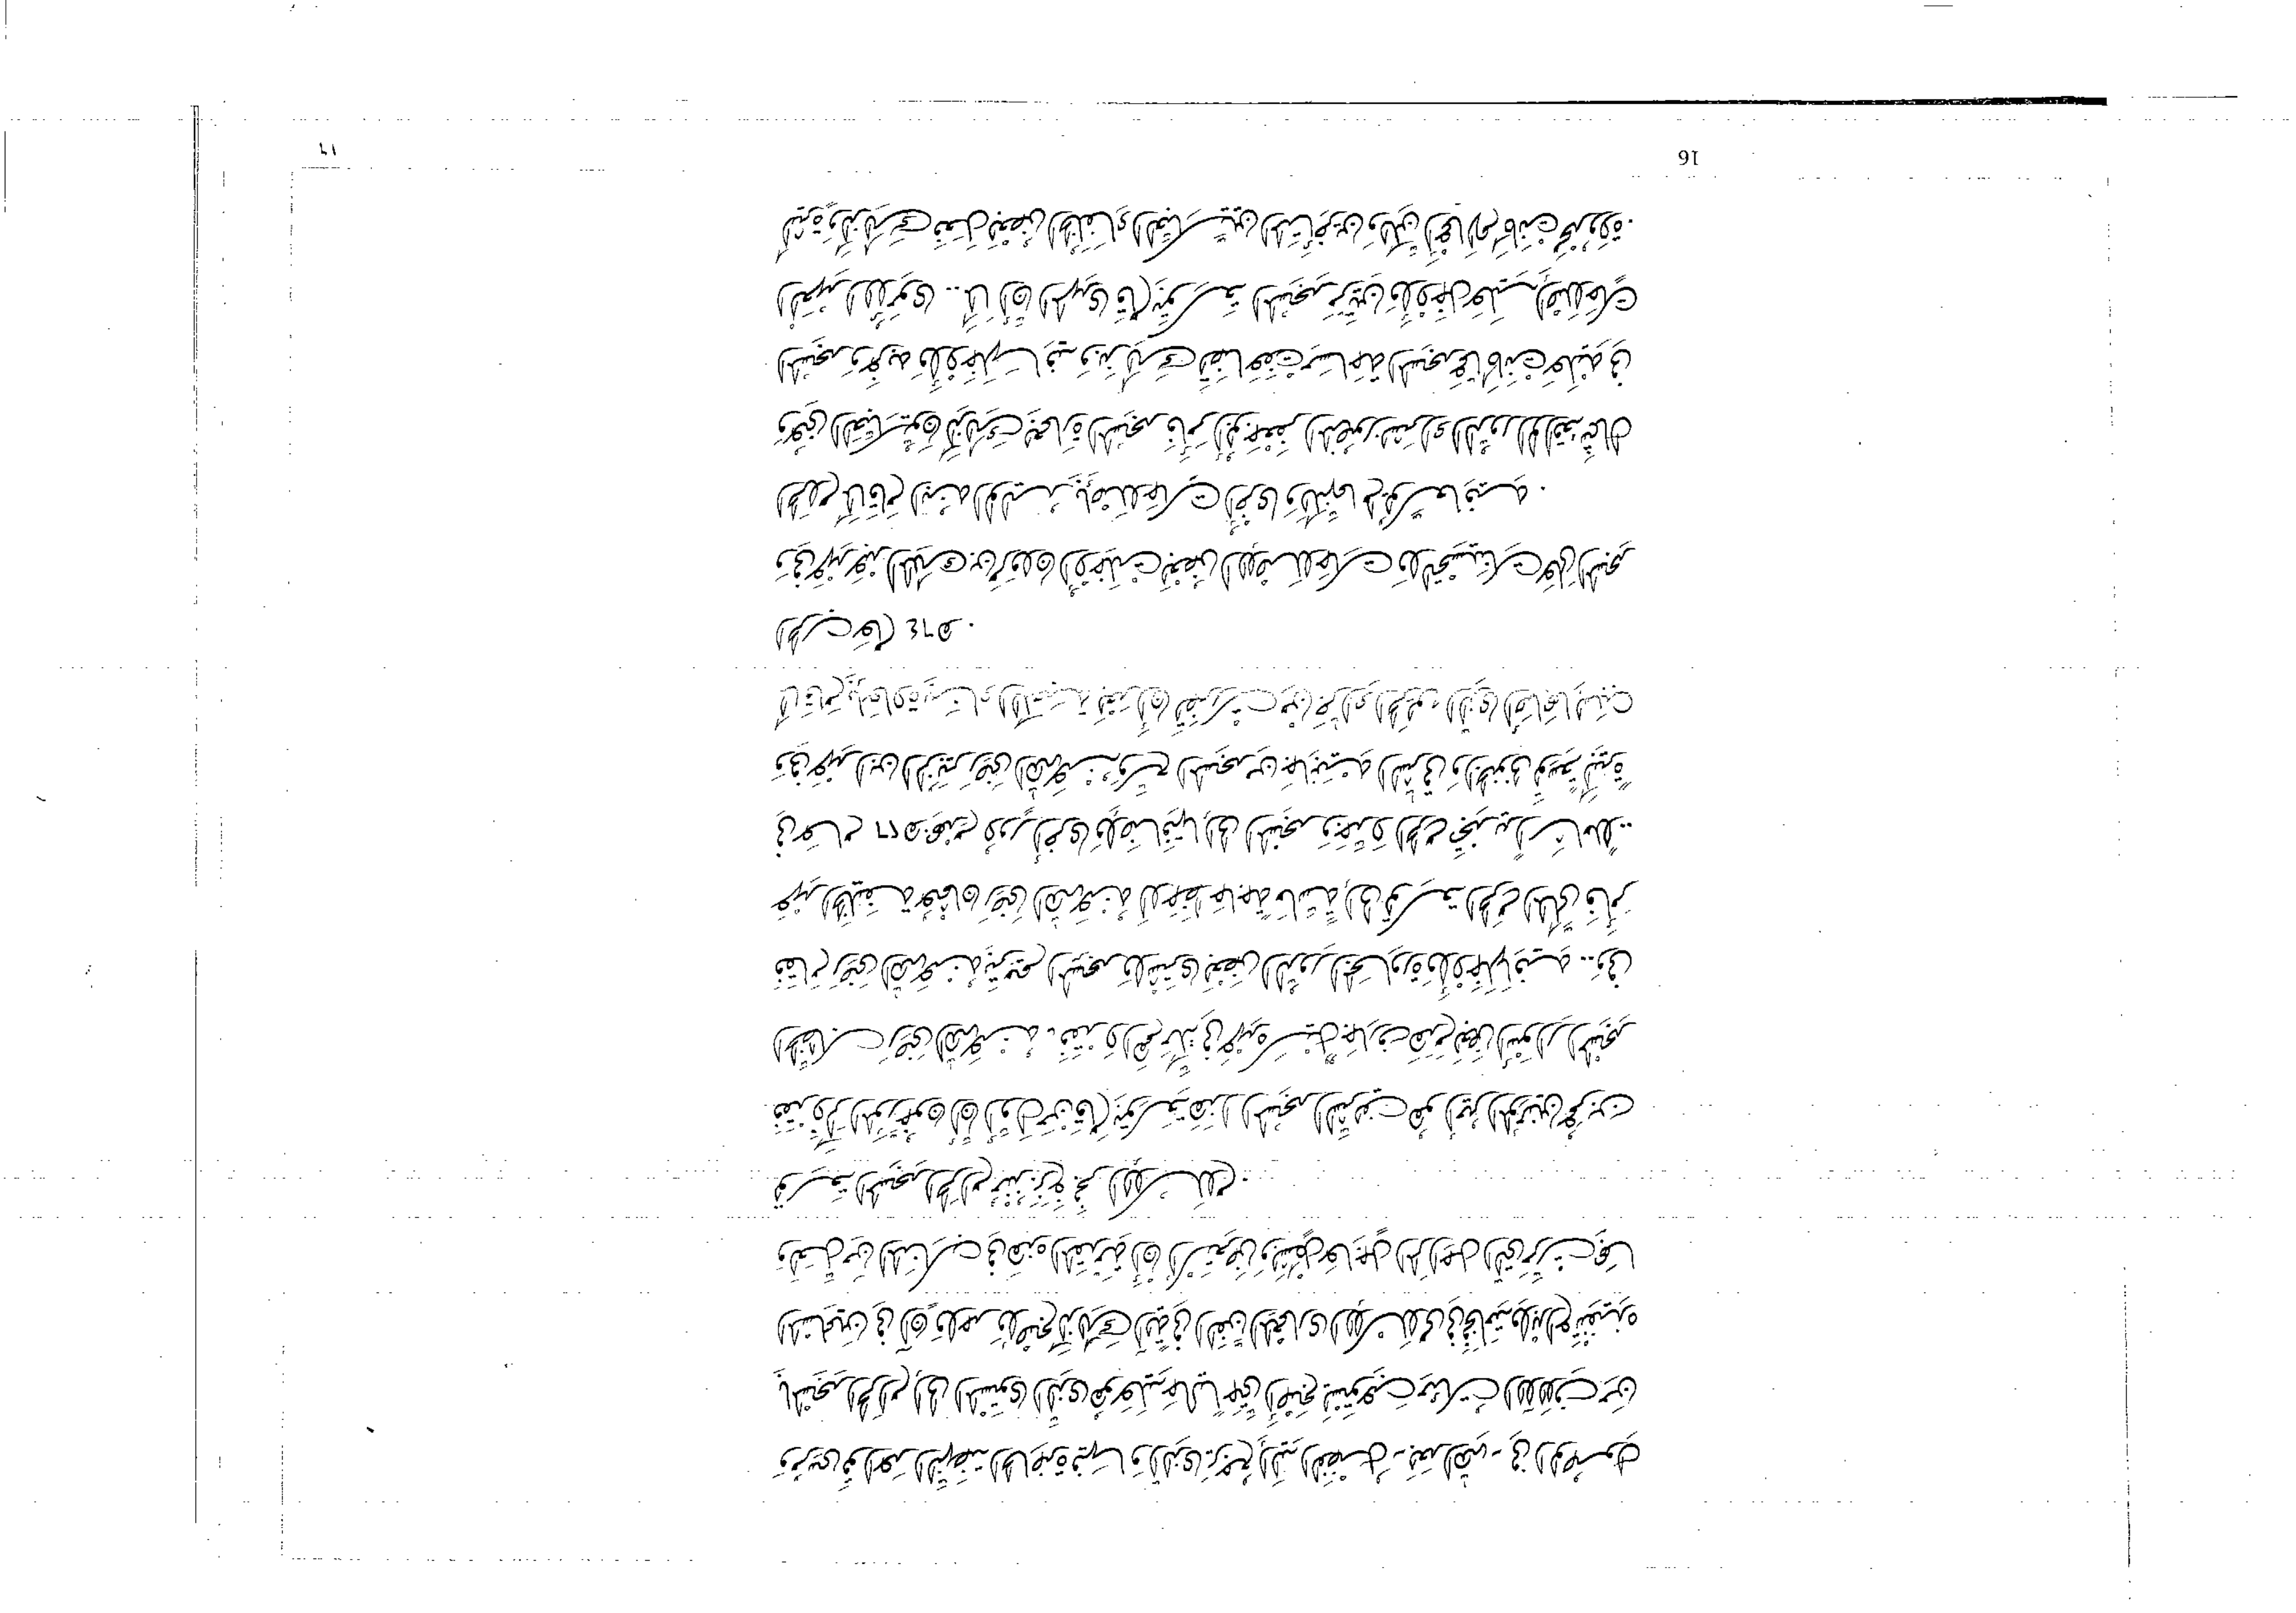 النهضة الحاضرة فيها والذي يرجع إليه الفضل - بعد الله - في الوصول
بالمسجد الحرام إلى المستوى الذي هو عليه حاليا حتى أصبح يستوعب مئات الألوف من
في آن واحد آية في الفن المعماري الإسلامي
في هذه أن المراحل التي مرت بها
توسعة المسجد الحرام منذ فجر الإسلام.
فقد ذكر المؤرخون أن أول من قام بتوسعة هذا المسجد الشريف هو أمير المؤمنين عمر بن
الخطاب رضي الله عنه ، فقد داهم مكة في عهده سيل جارف هدم بعض أسوار المسجد
فقام رضي الله عنه بترميم المسجد واشترى بعض الدور المجاورة وأدخلها فيه .. وفي
عهد الخليفة عثمان رضي الله عنه لوحظ حاجة ماسة إلى توسعة الحرم المكي فأمر
في عام ٢٦ هجـ بهدم دور أخرى وإضافتها إلى المسجد وجدد الحرم تجديدا شاملا ..
وفي عهد ابن الزبير رضي الله عنه وسع المسجد من جانبيه الشرقي والجنوبي توسعة كبيرة
كما قام بإعادة بناء الكعبة بعد أن تضررت من جراء الحريق الذي أصابها بسبب
الحرب عام ٦٤ هـ .
وفي عهد عبد الملك بن مروان أدخلت بعض الإصلاحات والتحسينات على المسجد
الحرام كما قام ابنه الوليد بإصلاحات أخرى
عمارة المسجد فأمر أبو جعفر المنصور بشراء الدور
المسجد وأدخلها فيه مساحة المسجد عما كانت عليه في
العهد الأموي .. كما أن المهدي قام بتوسعة المسجد مرتين وأدخل عليه إصلاحات
كثيرة بعض الخلفاء العباسيين المتأخرين ولكن كانت محدودة .
16
١٦